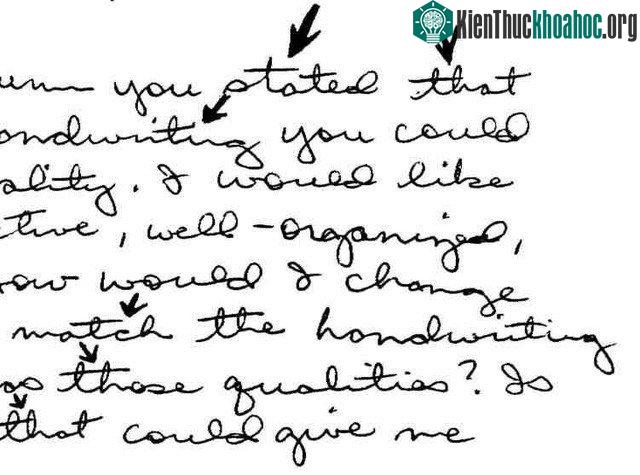 KienThuckhoahoc.org
you stated that
andwriting you could
ality. I would like
ctive, well-organized,
ow would I change
match the handwriting
as those qualities? Is
that could give me